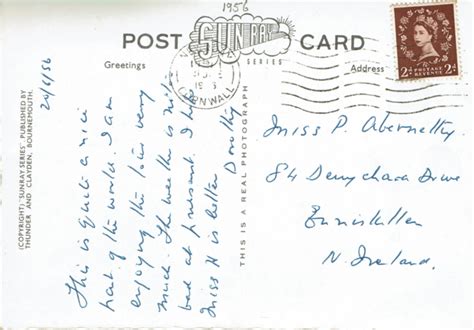 1956
POST CARD
SUNRAY
SERIES
Greetings
Address
CORNWALL
2D 2D
POSTAGE REVENUE
(COPYRIGHT) "SUNRAY SERIES" PUBLISHED BY
THUNDER AND CLAYDEN, BOURNEMOUTH.
THIS IS A REAL PHOTOGRAPH
20/6/56
This is quite a nice
part of the world. I am
enjoying the tour very
much. The weather is not
bad at present. I hope
Miss H is better
Dorothy
Miss P. Abernethy
84 Drive
Enniskillen
N. Ireland.